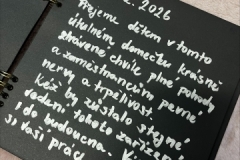 2. 2026
Přejeme dětem v tomto
útulném domečku krásně
strávené chvíle plné pohody
a zaměstnancům pevné
nervy a trpělivost.
Kéž by zůstalo stejné
vedení tohoto zařízení
i do budoucna.
s vaší prací